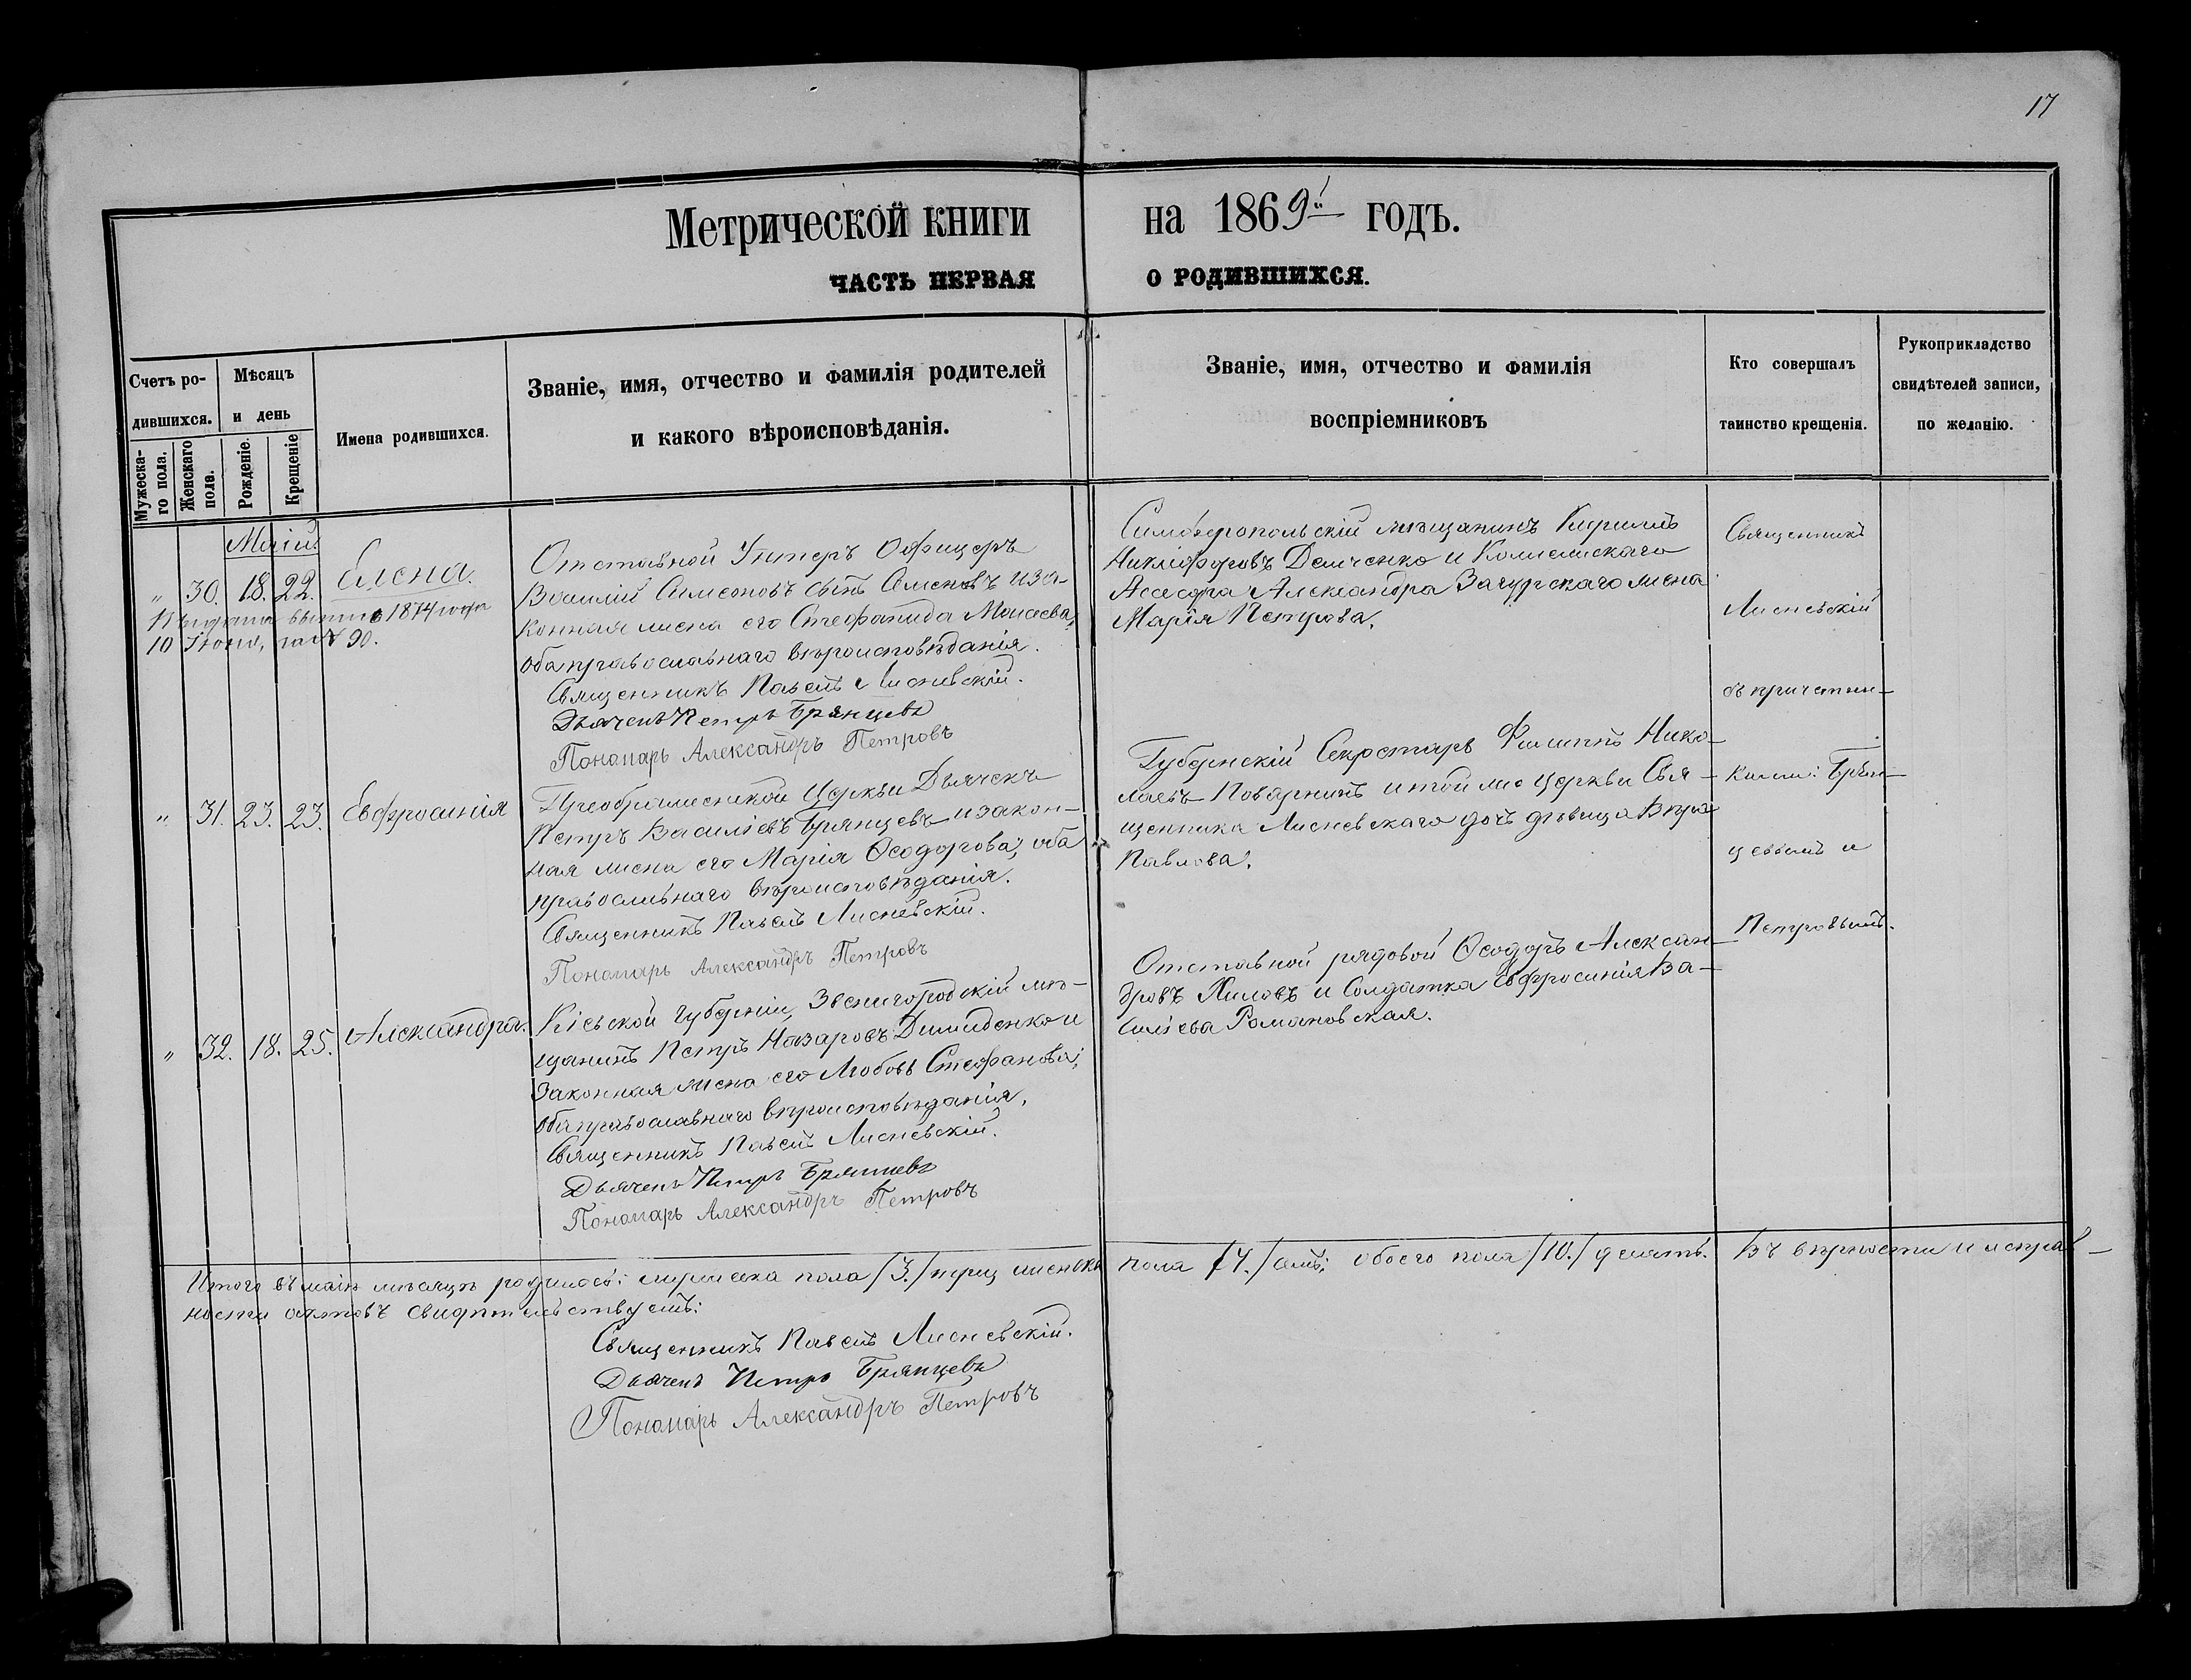 17
Метрической книги на 1869й годъ.
ЧАСТЬ ПЕРВАЯ О РОДИВШИХСЯ.
Счетъ ро-
дившихся.
Мужеска-
го пола.
Женскаго
пола.
Мѣсяцъ
и день
Рожденіе.
Крещеніе
Имена родившихся.
Званіе, имя, отчество и фамилія родителей
и какого вѣроисповѣданія.
Званіе, имя, отчество и фамилія
воспріемниковъ
Кто совершалъ
таинство крещенія.
Рукоприкладство
свидѣтелей записи,
по желанію.
Маій
„ 30. 18. 22. Елена.
выпись 1874 года
10 Іюня, за № 90.
Отставной Унтеръ Офицеръ
Василій Симеоновъ сынъ Семеновъ и за-
конная жена его Стефанида Моисеева,
оба православнаго вѣроисповѣданія.
Священникъ Павелъ Лисневскій.
Дьячекъ Петръ Брянцевъ
Пономарь Александръ Петровъ
Симферопольскій мѣщанинъ Кириллъ
Никифоровъ Демченко и Коллежскаго
Асесора Александра Загурскаго жена
Марія Петрова.
Священникъ
Лисневскій
съ причетни-
ками: Брян-
цевымъ и
Петровымъ.
„ 31. 23. 23. Евфросинія
Преображенской Церкви Дьячекъ
Петръ Василіевъ Брянцевъ и закон-
ная жена его Марія Ѳеодорова; оба
православнаго вѣроисповѣданія.
Священникъ Павелъ Лисневскій.
Пономарь Александръ Петровъ
Губернскій Секретарь Филиппъ Нико-
лаевъ Поваринъ и той же церкви Свя-
щенника Лисневскаго дочь дѣвица
Павлова.
„ 32. 18. 25. Александра.
Кіевской губерніи, Звенигородскій мѣ-
щанинъ Петръ Назаровъ Димиденко и
законная жена его Любовь Стефанова;
оба православнаго вѣроисповѣданія.
Священникъ Павелъ Лисневскій.
Дьячекъ Петръ Брянцевъ
Пономарь Александръ Петровъ
Отставной рядовой Ѳеодоръ Алексан-
дровъ Хиловъ и Солдатка Евфросинія Ва-
силіева Романовская.
Итого въ маіѣ мѣсяцѣ родилось: мужеска пола /3./ три, женска пола /7./ семь; обоего пола /10./ десять. Въ вѣрности и исправ-
ности актовъ свидѣтельствуемъ:
Священникъ Павелъ Лисневскій.
Дьячекъ Петръ Брянцевъ
Пономарь Александръ Петровъ